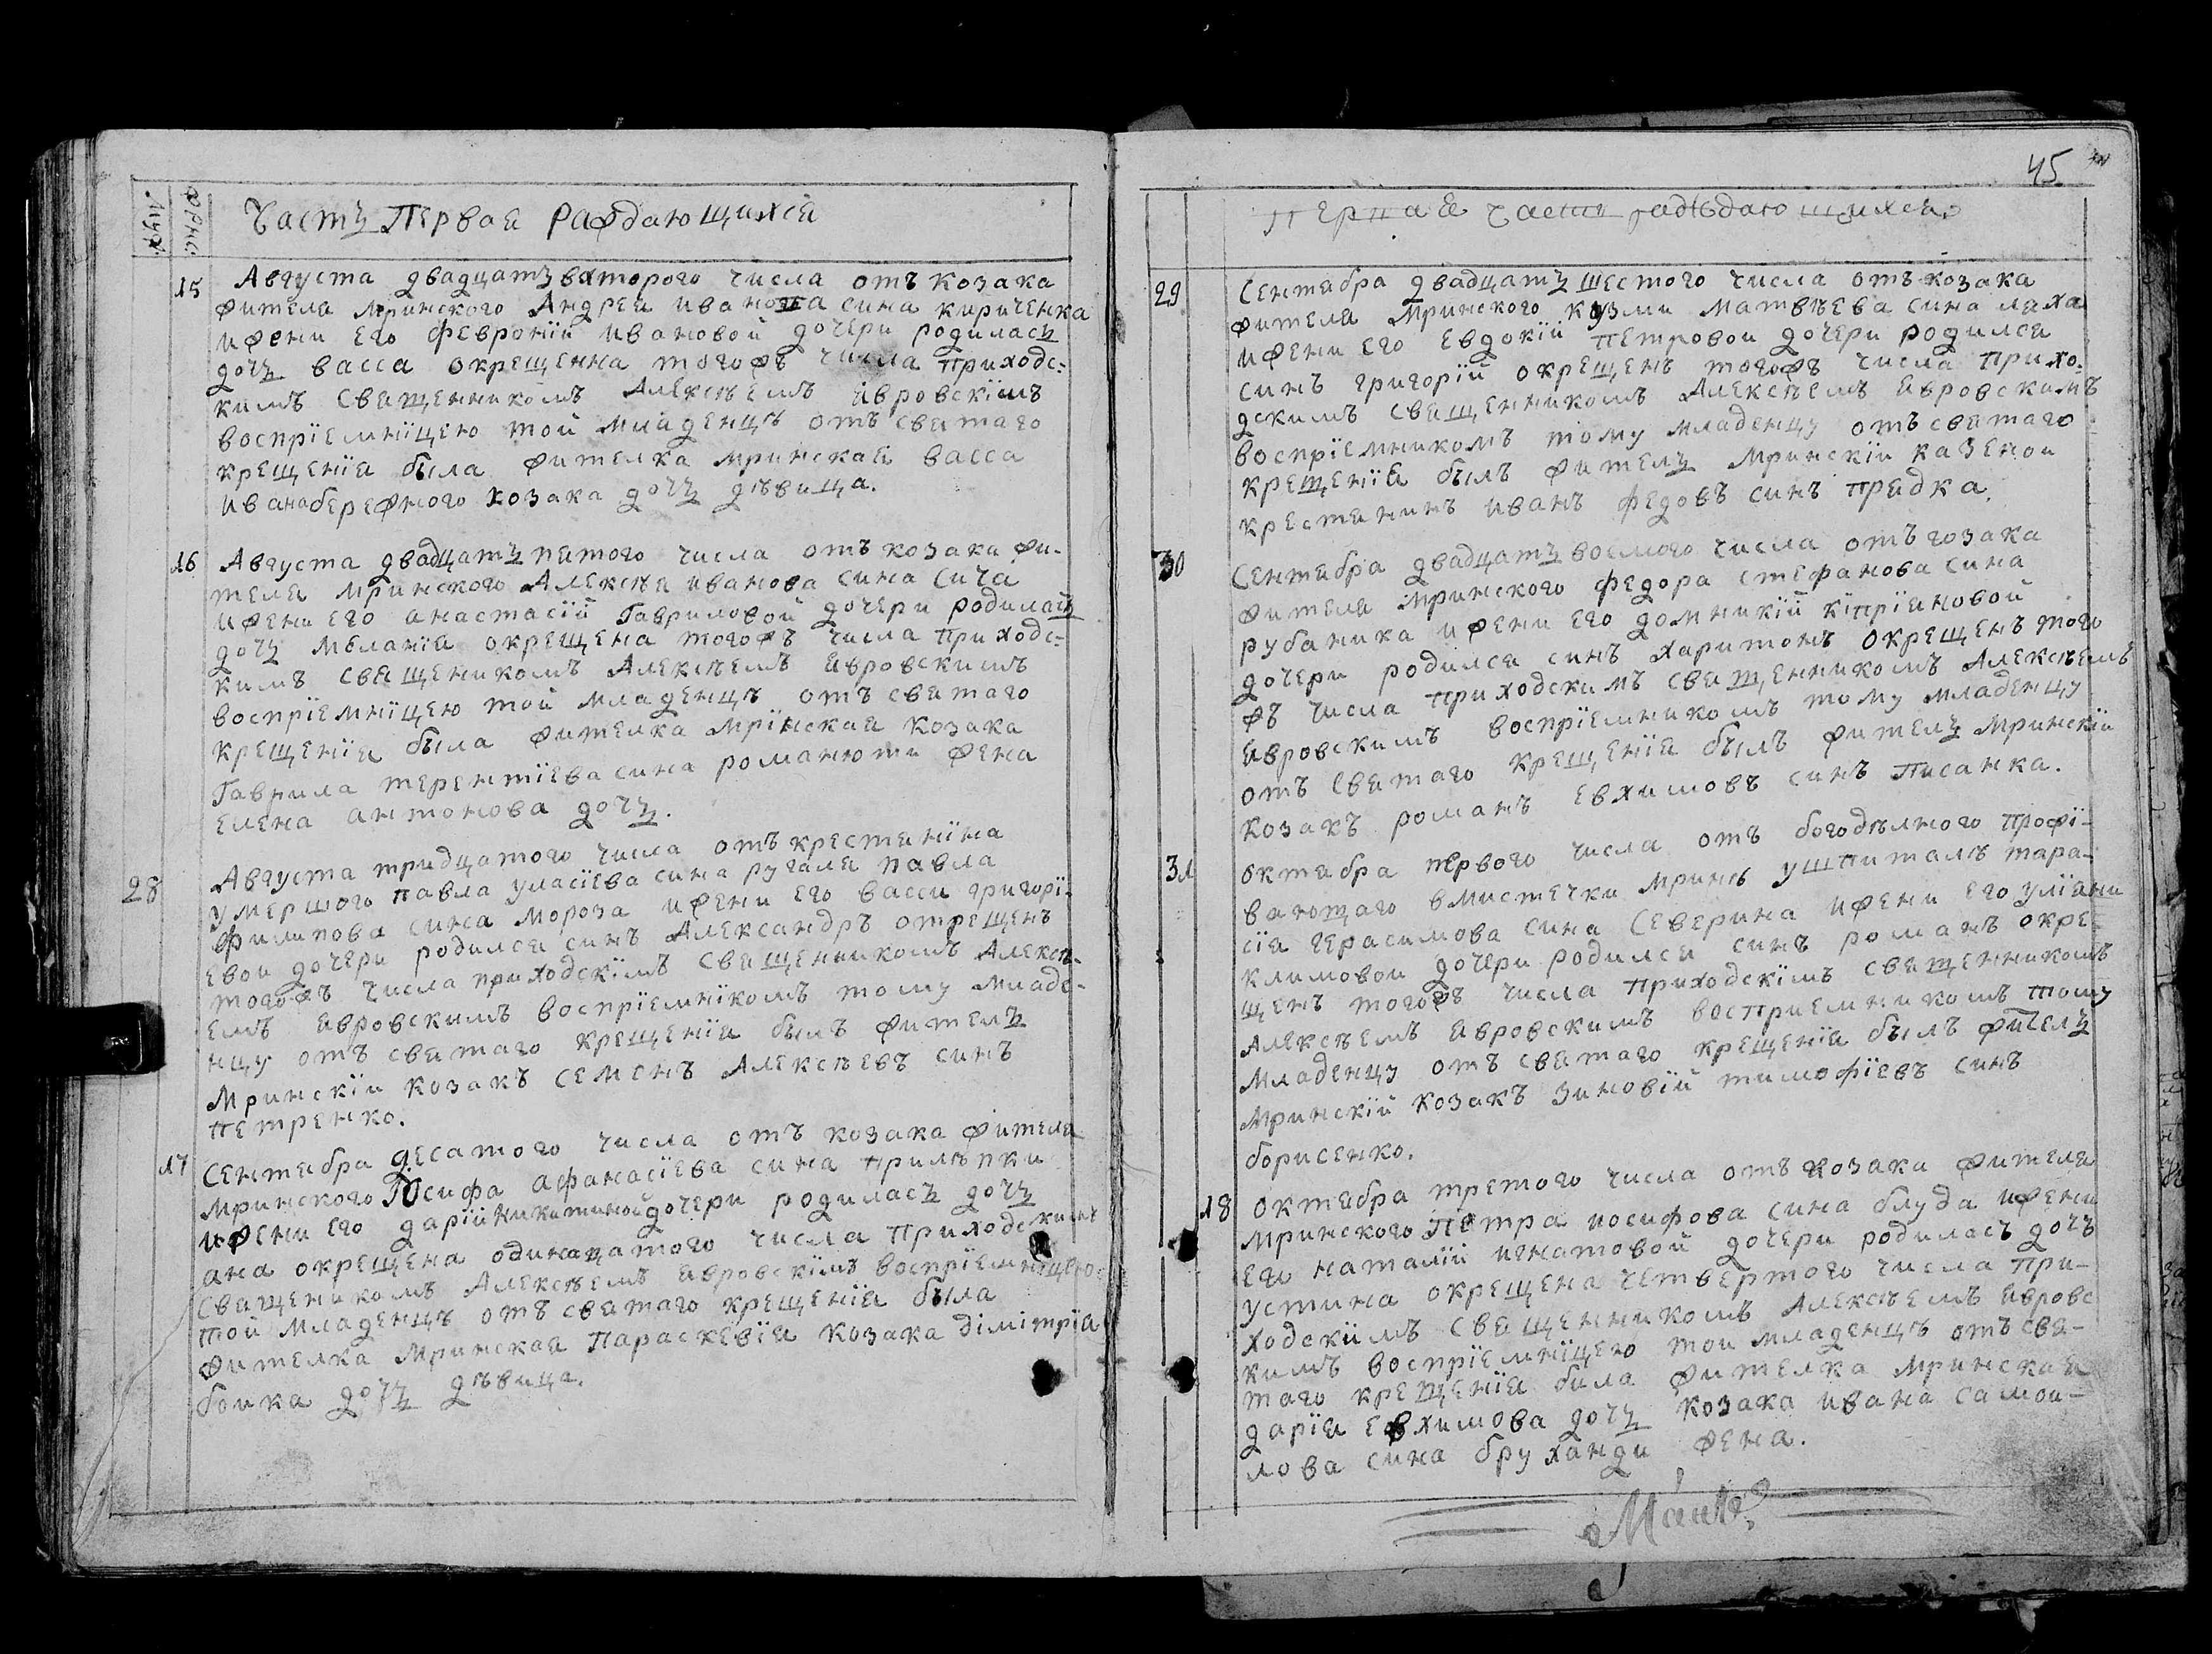 Муж:
Женс:
Часть Первая Раждающихся
15
Августа двадцать второго числа отъ козака
жителя мринского Андрея иванова сина кириченка
ижени его февронїи ивановой дочери родилась
дочь васса окрещенна тогожъ числа приходс:
кимъ священникомъ Алексѣемъ Явровскїмъ
воспрїемнїцею той младенцѣ отъ святаго
крещенїя была жителка мринская васса
ивана бережного козака дочь дѣвица.
16
Августа двадцать пятого числа отъ козака жи-
теля мринского Алексѣя иванова сина Сича
ижени его анастасїй Гавриловой дочери родилась
дочь меланїя окрещена тогожъ числа приходс-
кимъ священикомъ Алексѣемъ Явровскимъ
воспрїемнїцею той младенцѣ отъ святаго
крещенїя была жителка мрїнская козака
Гаврила терентїева сина романюти жена
елена антонова дочь.
28
Августа тридцатого числа отъ крестянїна
умершого павла уласїева сина ругаля павла
филипова сина мороза ижени его васси григорї-
евои дочери родился синъ Александръ отрещенъ
тогожъ числа приходскїмъ священникомъ Алексѣ-
емъ Явровскимъ воспрїемнїкомъ тому младе-
нцу отъ святаго крещенїя былъ жытель
мринскїи козакъ семенъ Алексѣевъ синъ
петренко.
17
Сентября десятого числа отъ козака жителя
мринского Юсифа афанасїева сина прилѣпки
ижени его дарїй никитиной дочери родилась дочь
ана окрещена одинацатого числа приходскимъ
священикомъ Алексѣемъ Явровскїмъ воспрїемнїцею
той младенцѣ отъ святаго крещенїя была
жителка мринская Параскевїя козака дїмїтрїя
боика дочь дѣвица.
45
Первая часть раждающихся
29
Сентября двадцать шестого числа отъ козака
жителя мринского кузми матвѣева сина ляха
ижени его евдокїй петровои дочери родился
синъ григорїй окрещенъ тогожъ числа прихо:
дскимъ священникомъ Алексѣемъ Явровскимъ
воспрїемникомъ тому младенцу отъ святаго
крещенїя былъ житель мринскїи казенои
крестянинъ иванъ федовъ синъ прядка.
30
Сентября двадцать восмого числа отъ козака
жителя мринского федора стефанова сина
рубаника ижени его домникїй кїпрїяновой
дочери родился синъ харитонъ окрещенъ того
жъ числа приходскимъ священникомъ Алексѣемъ
Явровскимъ воспрїемникомъ тому младенцу
отъ Святаго крещенїя былъ житель мринскїи
козакъ романъ евхимовъ синъ писанка.
31
октября первого числа отъ богодѣлного профі-
вающаго вмистечки мринѣ ушпиталѣ тара-
сїя герасимова сина Северина ижени его улїяни
климовои дочери родился синъ романъ окре-
щенъ тогожъ числа приходскїмъ священникомъ
Алексѣемъ Явровскимъ восприемникомъ тому
младенцу отъ святаго крещенїя былъ жітель
мринскїй козакъ зиновїй тимофїевъ синъ
борисенко.
18
октября третого числа отъ козака жителя
мринского Петра иосифова сина блуда ижени
его наталїй игнатовой дочери родилась дочь
устина окрещена четвертого числа при-
ходскїмъ священникомъ Алексѣемъ Явровс
кимъ воспрїемнїцею тои младенцѣ отъ свя-
таго крещенїя била жителка мринская
дарїя евхимова дочь козака ивана самои-
лова сина бруханди жена.